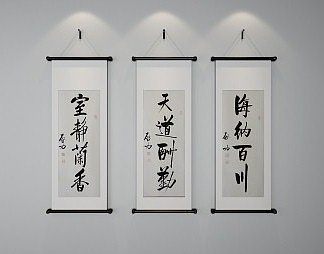 室静兰香
启功
天道酬勤
启功
海纳百川
启功